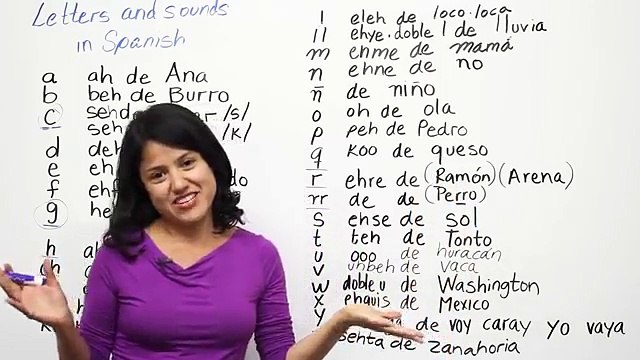 Letters and sounds
in Spanish
a ah de Ana
b beh de Burro
c /s/
/k/
d
e
f
g
h
l eleh de loco.loca
ll ehye.doble l de lluvia
m ehme de mamá
n ehne de no
ñ de niño
o oh de ola
p peh de Pedro
q koo de queso
r ehre de (Ramón) (Arena)
rr de de (Perro)
s ehse de sol
t teh de Tonto
u ooo de huracán
v de vaca
w doble u de Washington
x de Mexico
y de voy caray yo vaya
de zanahoria